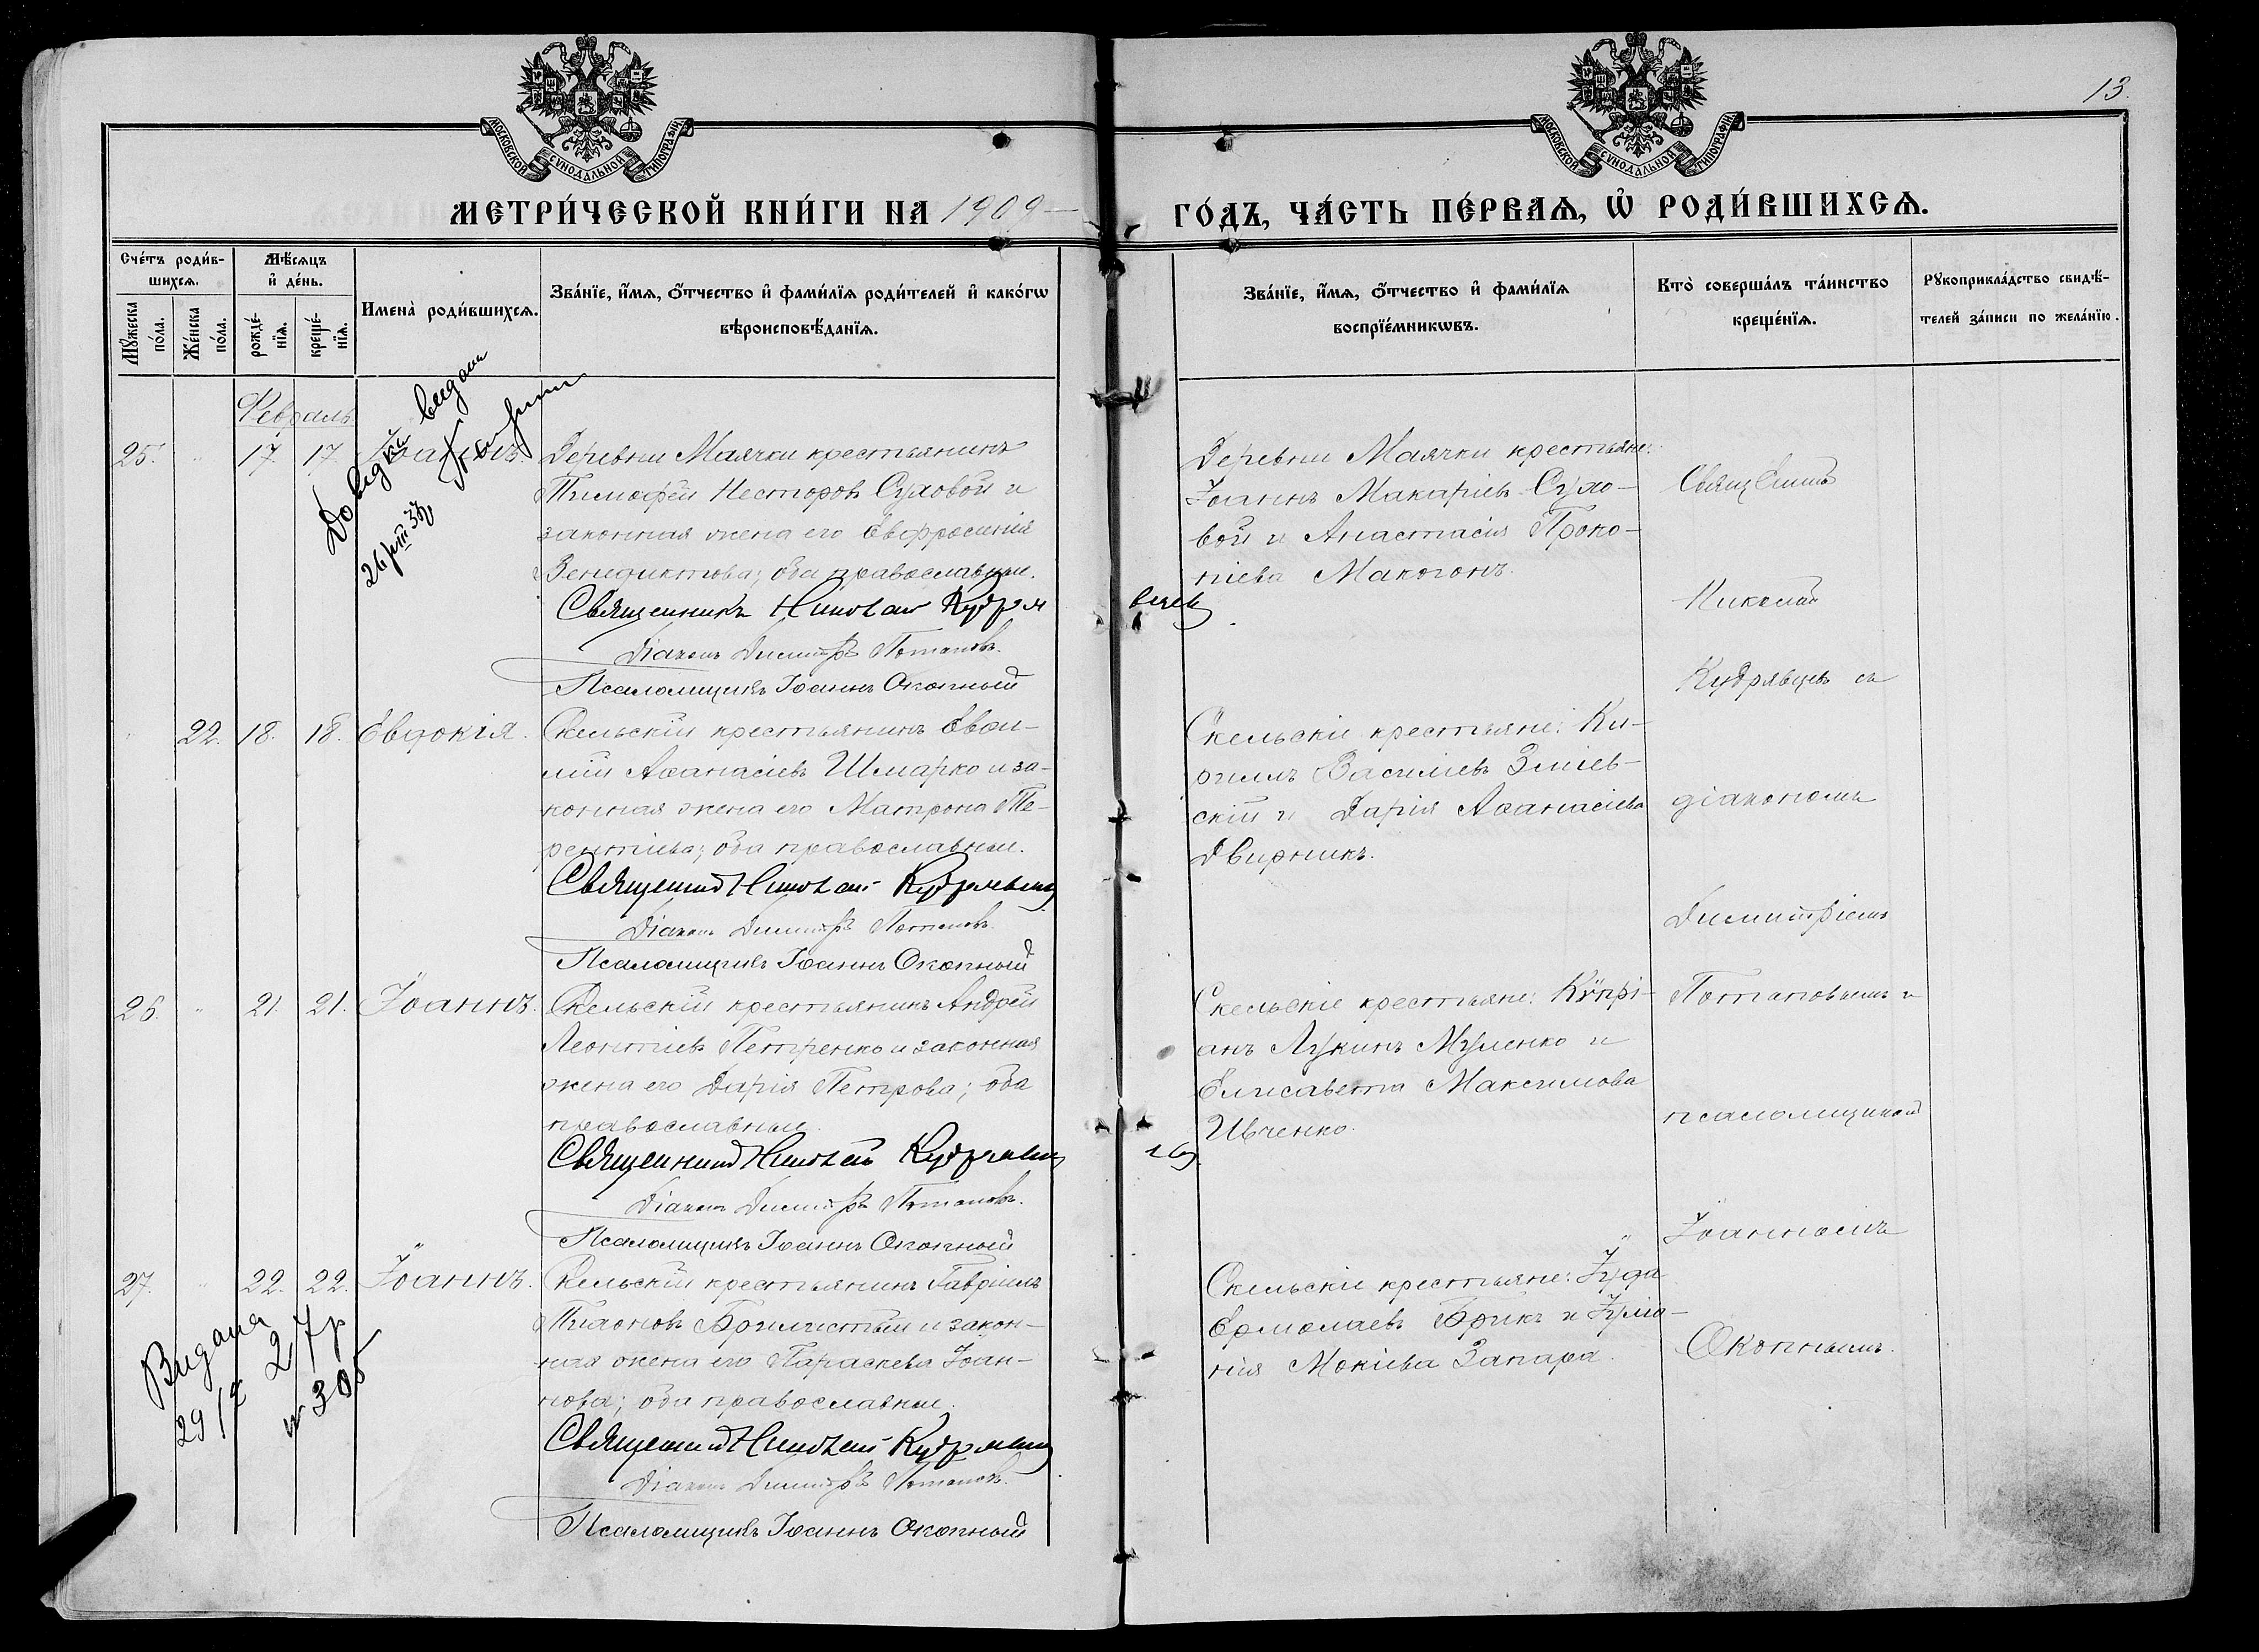 13.
МОСКОВСКОЙ СѴНОДАЛЬНОЙ ТИПОГРАФІИ
МОСКОВСКОЙ СѴНОДАЛЬНОЙ ТИПОГРАФІИ
МЕТРИ́ЧЕСКОЙ КНИ́ГИ НА 1909
ГО́ДЪ, ЧА́СТЬ ПЕ́РВАѦ, Ѡ҆ РОДИ́ВШИХСѦ.
Сче́тъ роди́в-
шихсѧ.
Мꙋжеска по́ла.
Же́нска по́ла.
Мѣ́сѧцъ
и҆ де́нь.
рожде́-
нїѧ.
креще́-
нїѧ.
Имена̀ роди́вшихсѧ.
Зва́нїе, и҆́мѧ, ѻ҆́тчество и҆ фами́лїѧ роди́телей и҆ како́гѡ
вѣроисповѣ́данїѧ.
Зва́нїе, и҆́мѧ, ѻ҆́тчество и҆ фами́лїѧ
воспрїе́мникѡвъ.
Кто̀ соверша́лъ та́инство
креще́нїѧ.
Рꙋкоприкла́дство свидѣ́-
телей за́писи по жела́нїю.
Февраль
25. " 17. 17. Іоаннъ.
Довідка видана
Деревни Маячки крестьянинъ
Тимофей Несторовъ Суховой и
законная жена его Евфросинія
Венедиктова; оба православные.
Священникъ Николай Кудрявцевъ
Діаконъ Димитрій Потаповъ.
Псаломщикъ Іоаннъ Окопный
Деревни Маячки крестьяне:
Іоаннъ Макаріевъ Сухо-
вой и Анастасія Проко-
піева Макогонъ.
22. 18. 18. Евдокія.
Скельскій крестьянинъ Евѳи-
мій Аѳанасіевъ Шмарко и за-
конная жена его Матрона Те-
рентіева; оба православные.
Священникъ Николай Кудрявцевъ
Діаконъ Димитрій Потаповъ.
Псаломщикъ Іоаннъ Окопный
Скельскіе крестьяне: Ки-
риллъ Василіевъ Зміев-
скій и Дарія Аѳанасіева
Двирникъ.
26. " 21. 21. Іоаннъ.
Скельскій крестьянинъ Андрей
Леонтіевъ Петренко и законная
жена его Дарія Петрова; оба
православные.
Священникъ Николай Кудрявцевъ
Діаконъ Димитрій Потаповъ.
Псаломщикъ Іоаннъ Окопный
Скельскіе крестьяне: Кѵпрі-
анъ Лукинъ Муленко и
Елисавета Максимова
Ивченко.
27. " 22. 22. Іоаннъ.
Видана
27 р
№ 305
Скельскій крестьянинъ Гавріилъ
Тихоновъ Брилистый и закон-
ная жена его Параскева Іоан-
нова; оба православные.
Священникъ Николай Кудрявцевъ
Діаконъ Димитрій Потаповъ.
Псаломщикъ Іоаннъ Окопный
Скельскіе крестьяне: Іуда
Ермолаевъ Брикъ и Іуліа-
нія Мокіева Запара.
Священникъ
Николай
Кудрявцевъ съ
діакономъ
Димитріемъ
Потаповымъ и
псаломщикомъ
Іоанномъ
Окопнымъ.